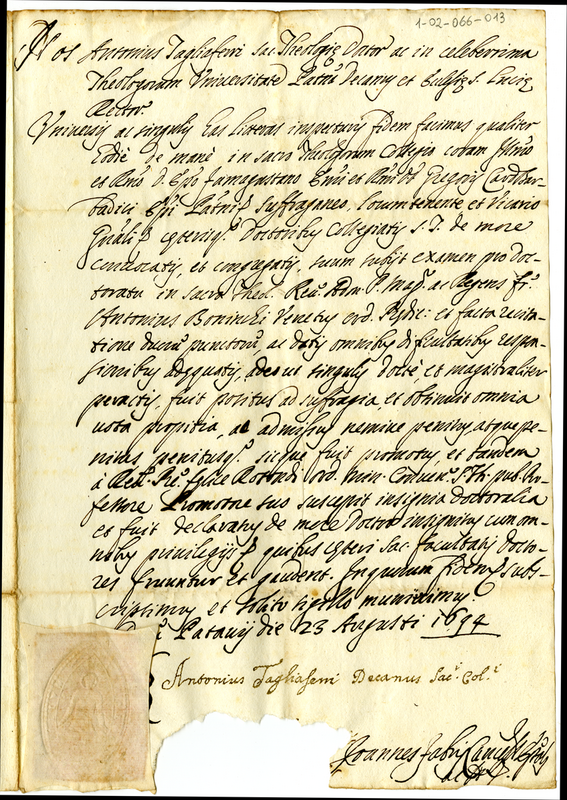 1-02-066-013
Nos Antonius Tagliaferri Sac. Theologię Dator ac in celeberrima
Theologorum Universitate Patnā Decanus et Ecclęę S. Lucię
Rector
Universis ac singulis has litteras inspecturis fidem facimus qualiter
hodiè de manè in sacro Theologorum Collegio coram
et Rmo D. Epo Famagustano Emi et Rmi DD. Gregorij Card. Bar-
badici Epi Patni suffraganeo, locumtenente et Vicario
Gnāli cęterisq. Doctoribus Collegiatis S. T. de more
convocatis, et congregatis, suum subijt examen pro Doc-
toratu in sacra Theol. Reu. Adm. P. Mag. ac Regens fr.
Antonius Boninchi Venetus ord. Prędic: et facta recita-
tione duorum punctorum ac datis omnibus difficultatibus respon-
sionibus adęquatis, adeo ut singulis doctè, et magistraliter
peractis, fuit positus ad suffragia, et obtinuit omnia
vota propitia, ac admissus nemine penitus, atque pe-
nitus, penitusq. sicque fuit promotus, et tandem
à Rdo. Pre. Felice Rotondi ord. Min. Conven. S. Th. pub. Pro-
fessore Promotore suo suscepit insignia doctoralia
et fuit declaratus de more Doctor insignitus cum om-
nibus privilegijs quibus cęteri Sac. facultatis docto-
res fruuntur et gaudent. In quorum fidem subs-
criptimus et solito sigillo munivimus.
Patavij die 23 Augusti 1694
Antonius Tagliaferri Decanus Sac. Col.
Joannes Fabris